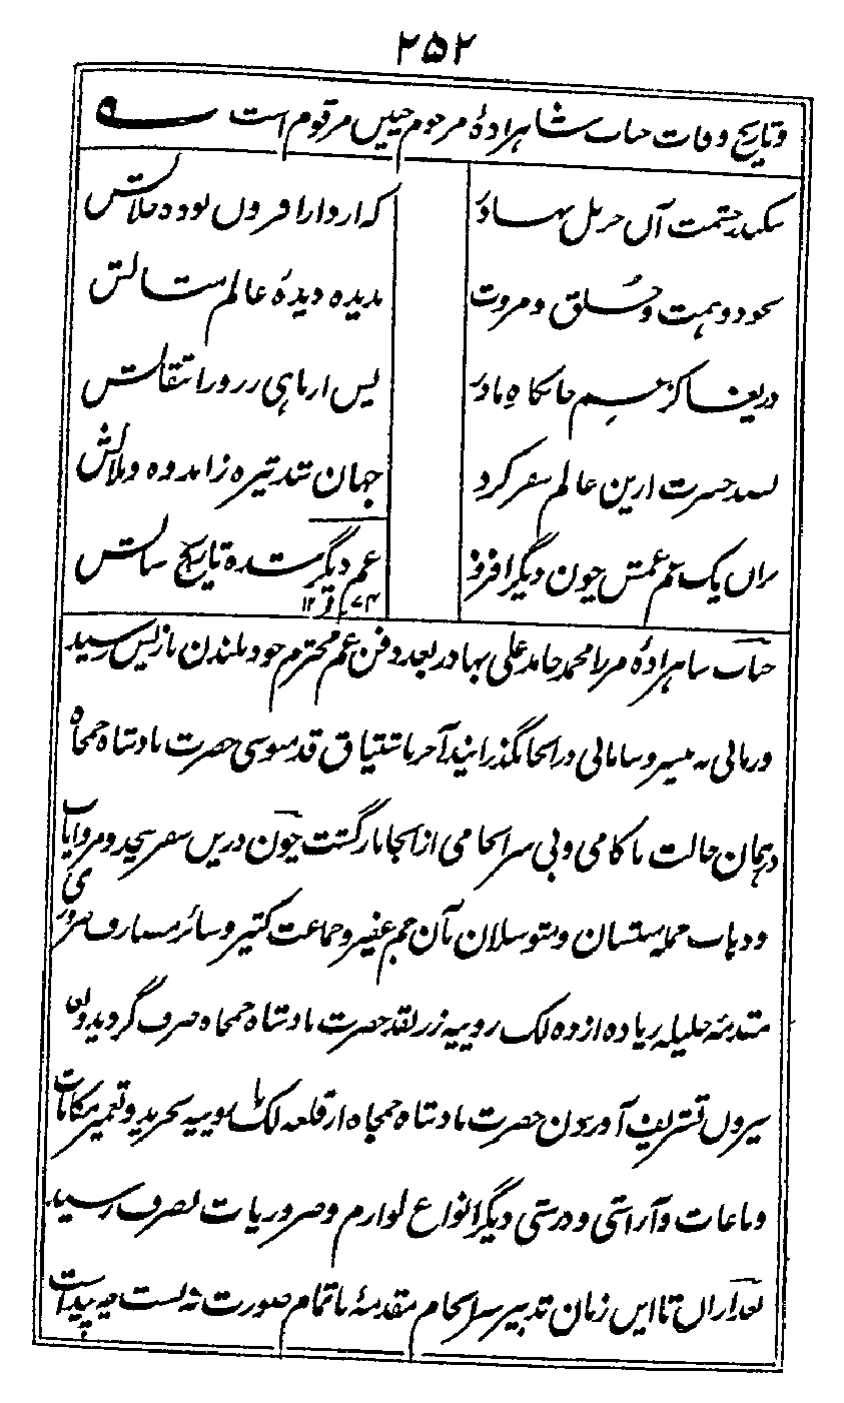 ۲۵۲
و تاریخ وفات جناب شاهزادهٔ مرحوم چنین مرقوم است
سکندر حشمت آں جرنل بهادر
که از دارا فزوں بوده جلالش
بجود و همت و خلق و مروت
ندیده دیدهٔ عالم مثالش
دریغا کز غم جانکاه مادر
پس از ماهی رود انتقالش
بصد حسرت ازین عالم سفر کرد
جهان شد تیره ز اندوه و ملالش
براں یک غم غمش چون دیگر افزود
غم دیگر شده تاریخ سالش
جناب شاهزادهٔ مرزا محمد حامد علی بهادر بعد دفن عم محترم خود بلندن باز پس رسید
و زمانی به بیسر و سامانی در انجا گذرانید آخر باشتیاق قدمبوسی حضرت بادشاه جمجاه
در همان حالت ناکامی و بی سرانجامی از انجا باز گشت چون دریں سفر بیحد و مر و ایاب
و ذهاب مهمانان و متوسلان بآن جم غفیر و جماعت کثیر و سائر مصارف ضروری
مقدمهٔ جلیله زیاده از ده لک روپیه زر نقد حضرت بادشاه جمجاه صرف گردید و از
بیروں تشریف آوردن حضرت بادشاه جمجاه از قلعه لکها روپیه بخرید و تعمیر مکانات
و باغات و آراستی و درستی دیگر انواع لوازم و ضروریات بصرف رسید
بعد ازاں تا این زمان تدبیر سرانجام مقدمهٔ ناتمام صورت نه بست چه پیداست